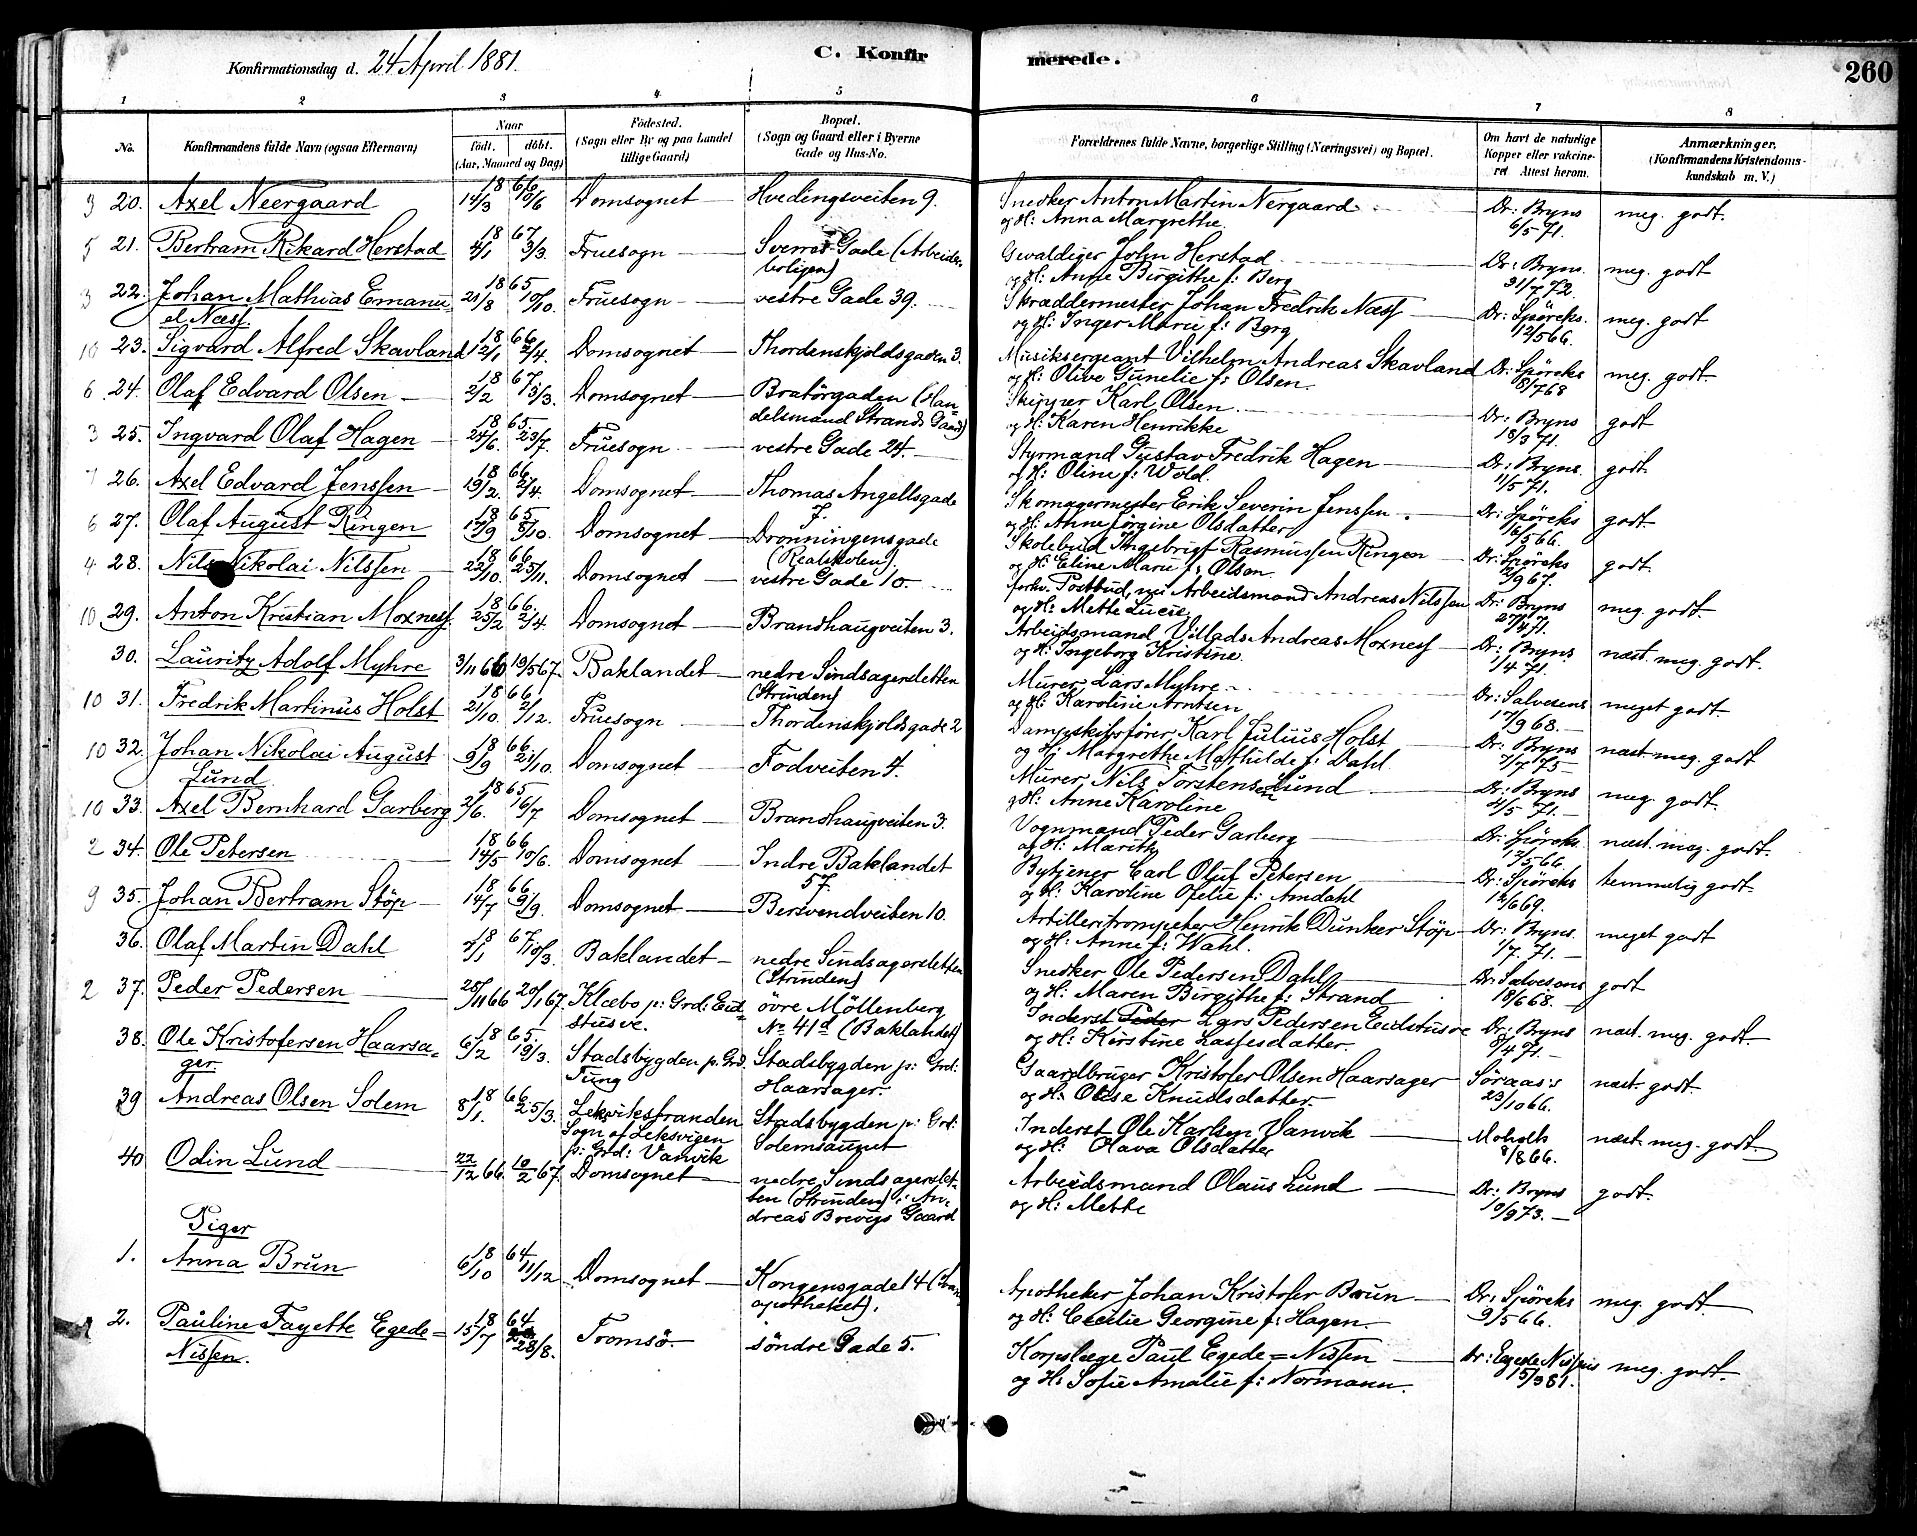 Konfirmationsdag d. 24 April 1881.
C. Konfir
merede.
260
1 2 3 4 5 6 7 8
No.
Konfirmandens fulde Navn (ogsaa Efternavn)
Naar
født. døbt.
(Aar, Maaned og Dag)
Fødested.
(Sogn eller By og paa Landet
tillige Gaard)
Bopæl.
(Sogn og Gaard eller i Byerne
Gade og Hus-No.
Forældrenes fulde Navne, borgerlige Stilling (Næringsvei) og Bopæl.
Om havt de naturlige
Kopper eller vakcine-
ret Attest herom.
Anmærkninger.
(Konfirmandens Kristendoms-
kundskab m. V.)
3 20. Axel Neergaard 18 66 14/3 10/6 Domsognet Hvedingsveiten 9. Snedker Anton Martin Nergaard Dr: Bryns meg. godt.
og H: Anna Margrethe 6/5 71.
5 21. Bertram Rikard Herstad 18 67 4/1 3/3. Fruesogn Sverres Gade (Arbeider- Gevaldiger John Herstad Dr: Bryns. meg. godt
boligen) og H: Anne Birgithe f: Berg 31/7 72.
3 22. Johan Mathias Emanu- 18 65 21/8 10/10. Fruesogn vestre Gade 39. Skræddermester Johan Fredrik Næss Dr: Spörcks. meg. godt
el Næss. og H: Inger Marie f: Berg 12/5 66.
10 23. Sigvard Alfred Skavland 18 66 12/1 2/4. Domsognet Thordenskjoldsgaden 3. Musiksergeant Vilhelm Andreas Skavland Dr: Spörcks meg. godt
og H: Olive Gunelie f: Olsen. 8/7 68
6. 24. Olaf Edvard Olsen 18 67 2/2 3/3. Domsognet Bratörgaden (Han- Skipper Karl Olsen Dr: Bryns godt
delsmand Strands Gaard) og H: Karen Henrikke 18/3 71.
3 25. Ingvard Olaf Hagen 18 65. 24/6. 23/7. Fruesogn vestre Gade 24. Styrmand Gustav Fredrik Hagen Dr: Bryns. godt.
af H: Oline f: Wold. 11/5 71.
26. Axel Edvard Jenssen 18 66 19/2. 2/4. Domsognet Thomas Angellsgade Skomagermester Erik Severin Jenssen Dr: Spörcks godt
7. og H: Anne Jörgine Olsdatter 16/5 66.
6 27. Olaf August Ringen 18 65 17/9 8/10. Domsognet Dronningensgade Skolebud Ingebrigt Rasmussen Ringen Dr: Spörcks godt.
(Realskolen). og H: Eline Marie f: Olsen 2/9 67.
4. 28. Nils Nikolai Nilssen 18 66 22/10. 25/11. Domsognet vestre Gade 10. forhv. Postbud, nu Arbeidsmand Andreas Nilssen Dr: Bryns meg. godt
og H: Mette Lucie 27/4 71.
10 29. Anton Kristian Moxness 18 66 25/2 2/4 Domsognet Brandhaugveiten 3. Arbeidsmand Villads Andreas Moxness Dr: Bryns næst. meg. godt.
og H: Ingeborg Kristine. 1/4 71.
30. Lauritz Adolf Myhre 3/11 66 19/5 67. Baklandet nedre Sindsagersletten Murer Lars Myhre Dr: Salvesens meget godt.
(Strinden) og H: Karoline Arntsen 17/9 68.
10 31. Fredrik Martinus Holst 18 66 21/10. 2/12. Fruesogn Thordenskjoldsgade 2 Dampskibsfører Karl Julius Holst Dr: Bryns næst meg. godt
og H: Margrethe Mathilde f: Dahl 7/7 75
10 32. Johan Nikolai August 18 66 9/9 21/10. Domsognet Fodveiten 4. Murer Nils Torstensen Lund Dr: Bryns meg. godt.
Lund og H: Anne Karoline 4/5 71.
10 33. Axel Bernhard Garberg 18 65 2/6. 16/7 Domsognet Brandhaugveiten 3. Vognmand Peder Garberg Dr: Spörcks næst. meg. godt.
af H: Marith 12/5 66.
2 34. Ole Petersen 18 66 14/5 10/6. Domsognet Indre Baklandet Bytjener Carl Oluf Petersen Dr: Spörcks temmelig godt.
57. og H: Karoline Ofelie f: Amdahl 12/6 69.
9 35. Johan Bertram Stöp 18 66. 14/7 9/9. Domsognet Bersvendveiten 10. Artilleritrompeter Henrik Dunker Stöp Dr: Bryns. meget godt
og H: Anne f: Wahl. 1/7. 71.
36. Olaf Martin Dahl 18 67 4/1 10/3. Baklandet nedre Sindsagersletten Snedker Ole Pedersen Dahl Dr: Salvesens godt
(Strinden) og H: Maren Birgithe f: Strand 18/6 68.
2 37. Peder Pedersen 25/11 66 20/1 67. Klæbo p: Grd: Eid- övre Möllenberg Inderst Peder Lars Pedersen Eidstusve Dr: Bryns næst. meg. godt
stusve. No 41a (Baklandet) og H: Kirstine Lassesdatter. 8/4 71.
38. Ole Kristofersen Haarsa- 18 65. 6/2 19/3. Stadsbygden p: Grd. Stadsbygden p: Grd: Gaardbruger Kristofer Olsen Haarsager Söraas's næst. godt.
ger. Tung Haarsager. og H: Olise Knudsdatter. 23/10 66.
39 Andreas Olsen Solem 18 66 8/1. 25/3. Leksvikstranden Stadsbygden p: Grd: Inderst Ole Karlsen Vanvik Moholts næst. meg. godt.
Sogn af Leksvigen Solemsaunet og H: Olava Olsdatter 8/8 66.
p: Grd: Vanvik
40 Odin Lund 22/12 66. 10/2 67. Domsognet nedre Sindsagerslet- Arbeidsmand Olaus Lund Dr: Bryns godt.
ten (Strinden) i An- og H: Mette 10/9 73.
dreas Brevigs Gaard
Piger
1. Anna Brun 18 64 6/10 11/12 Domsognet Kongensgade 14 (Svane- Apotheker Johan Kristofer Brun Dr: Spörcks meg. godt.
apotheket). og H: Cecilie Georgine f: Hagen 9/5 66.
2. Pauline Fayette Egede= 18 64 15/7 28/8. Tromsö. söndre Gade 5. Korpslæge Paul Egede=Nissen Dr: Egede Nissens meg. godt.
Nissen. og H: Sofie Amalie f: Normann. 15/3 81.